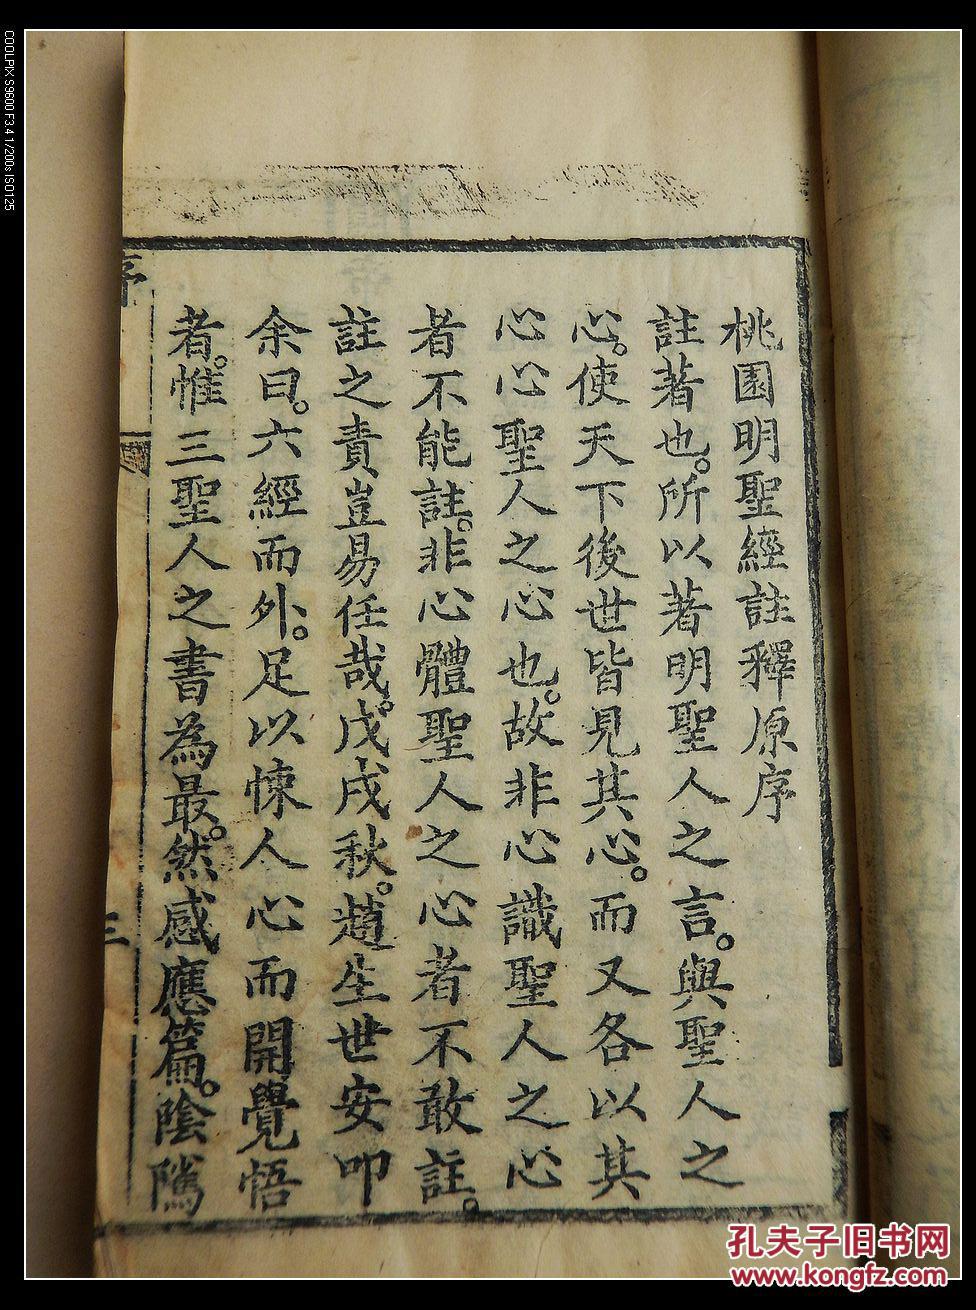 桃園明聖經註釋原序
註著也。所以著明聖人之言。與聖人之
心。使天下後世皆見其心。而又各以其
心心聖人之心也。故非心識聖人之心
者不能註。非心體聖人之心者不敢註。
註之責豈易任哉。戊戌秋。趙生世安叩
余曰。六經而外。足以悚人心而開覺悟
者。惟三聖人之書為最。然感應篇。陰隲
序
三
COOLPIX S9600 F3.4 1/200s ISO125
孔夫子旧书网
www.kongfz.com